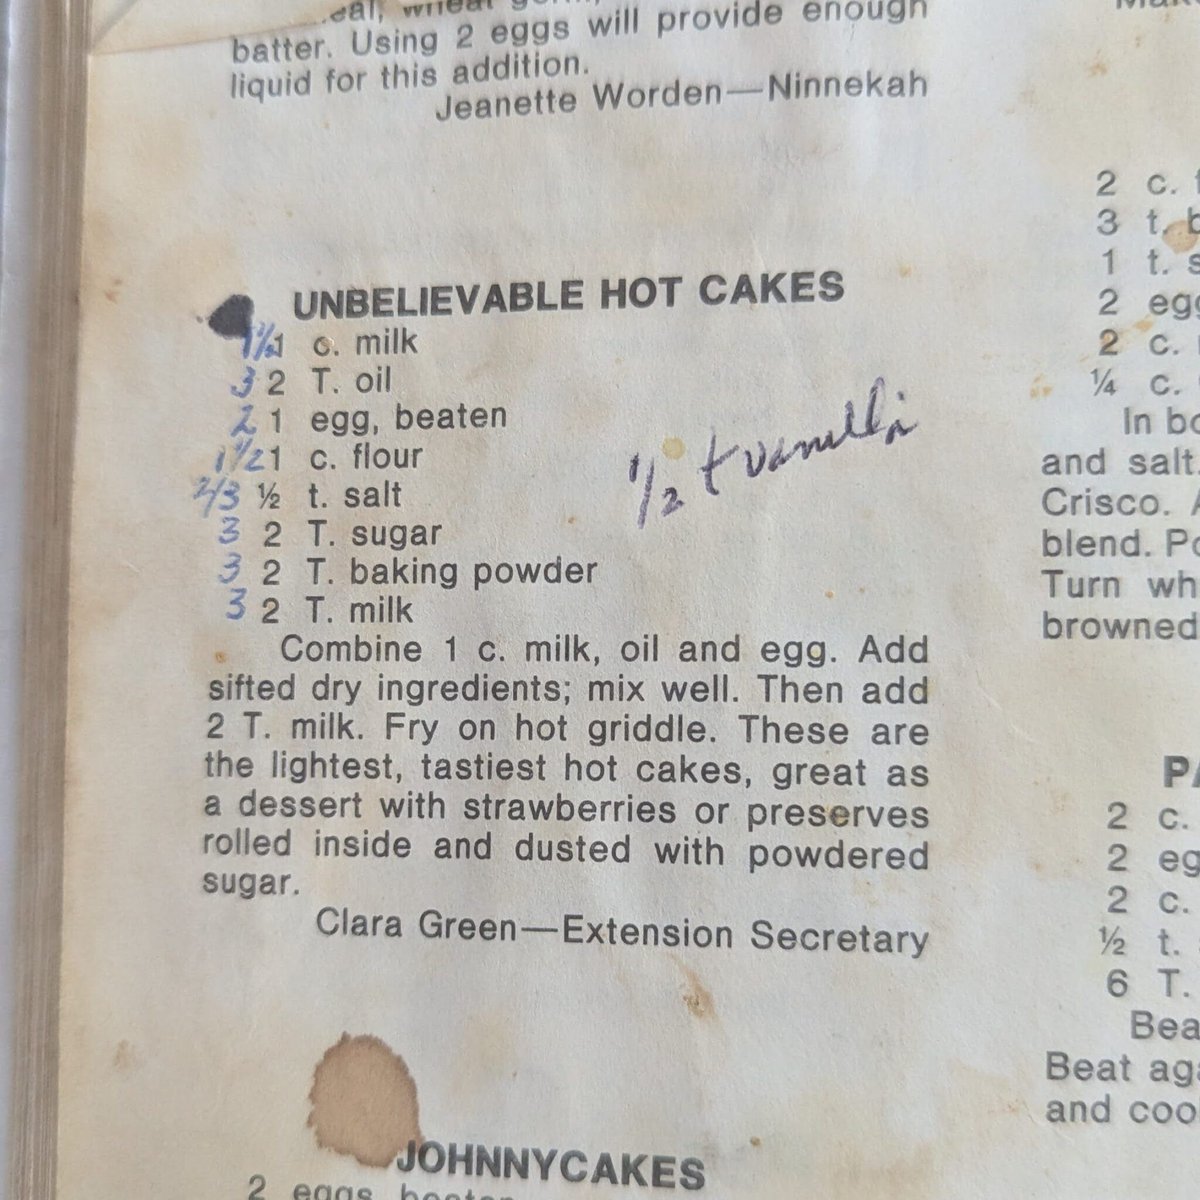 batter. Using 2 eggs will provide enough
liquid for this addition.
Jeanette Worden—Ninnekah
UNBELIEVABLE HOT CAKES
1½ 1 c. milk
3 2 T. oil
2 1 egg, beaten
1 1/2 1 c. flour
2/3 ½ t. salt
3 2 T. sugar
3 2 T. baking powder
3 2 T. milk
1/2 t vanilla
Combine 1 c. milk, oil and egg. Add
sifted dry ingredients; mix well. Then add
2 T. milk. Fry on hot griddle. These are
the lightest, tastiest hot cakes, great as
a dessert with strawberries or preserves
rolled inside and dusted with powdered
sugar.
Clara Green—Extension Secretary
JOHNNYCAKES
2 eggs
2 c.
3 t.
1 t.
2
2 c.
¼ c.
In
and salt.
Crisco.
blend.
Turn
browned
2 c.
2
2 c.
½ t.
6 T.
Beat
and